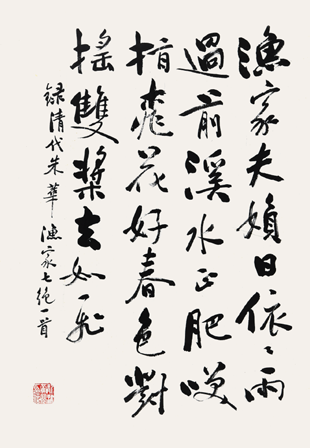 漁家夫婦日依〻雨
過前溪水正肥咲
指桃花好春色對
搖雙槳去如飛
録清代朱華漁家七絶一首